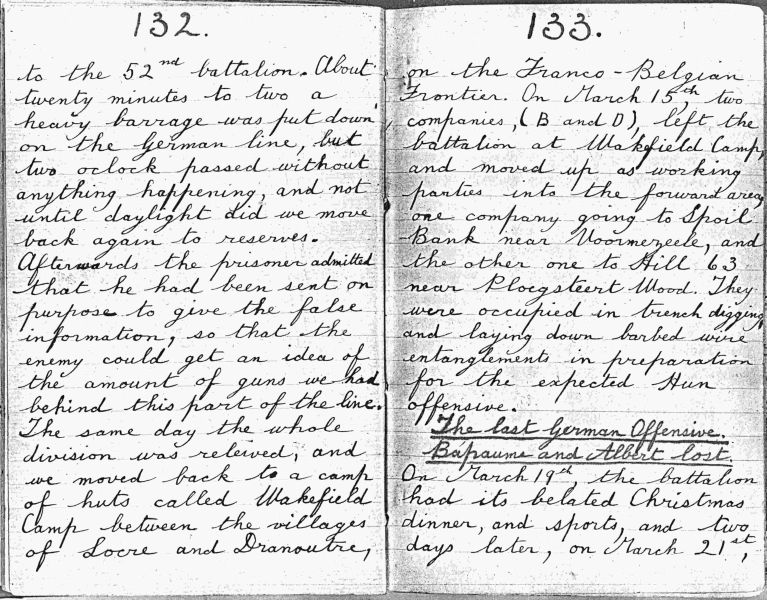 132.
to the 52nd battalion. About
twenty minutes to two a
heavy barrage was put down
on the German line, but
two oclock passed without
anything happening, and not
until daylight did we move
back again to reserves.
Afterwards the prisoner admitted
that he had been sent on
purpose to give the false
information, so that the
enemy could get an idea of
the amount of guns we had
behind this part of the line.
The same day the whole
division was releived, and
we moved back to a camp
of huts called Wakefield
Camp between the villages
of Locre and Dranoutre,
133.
on the Franco-Belgian
Frontier. On March 15th, two
companies, (B and D), left the
battalion at Wakefield Camp,
and moved up as working
parties into the forward area,
one company going to Spoil
Bank near Voormezeele, and
the other one to Hill 63
near Ploegsteert Wood. They
were occupied in trench digging,
and laying down barbed wire
entanglements in preparation
for the expected Hun
offensive.
The last German Offensive.
Bapaume and Albert lost.
On March 19th, the battalion
had its belated Christmas
dinner, and sports, and two
days later, on March 21st,